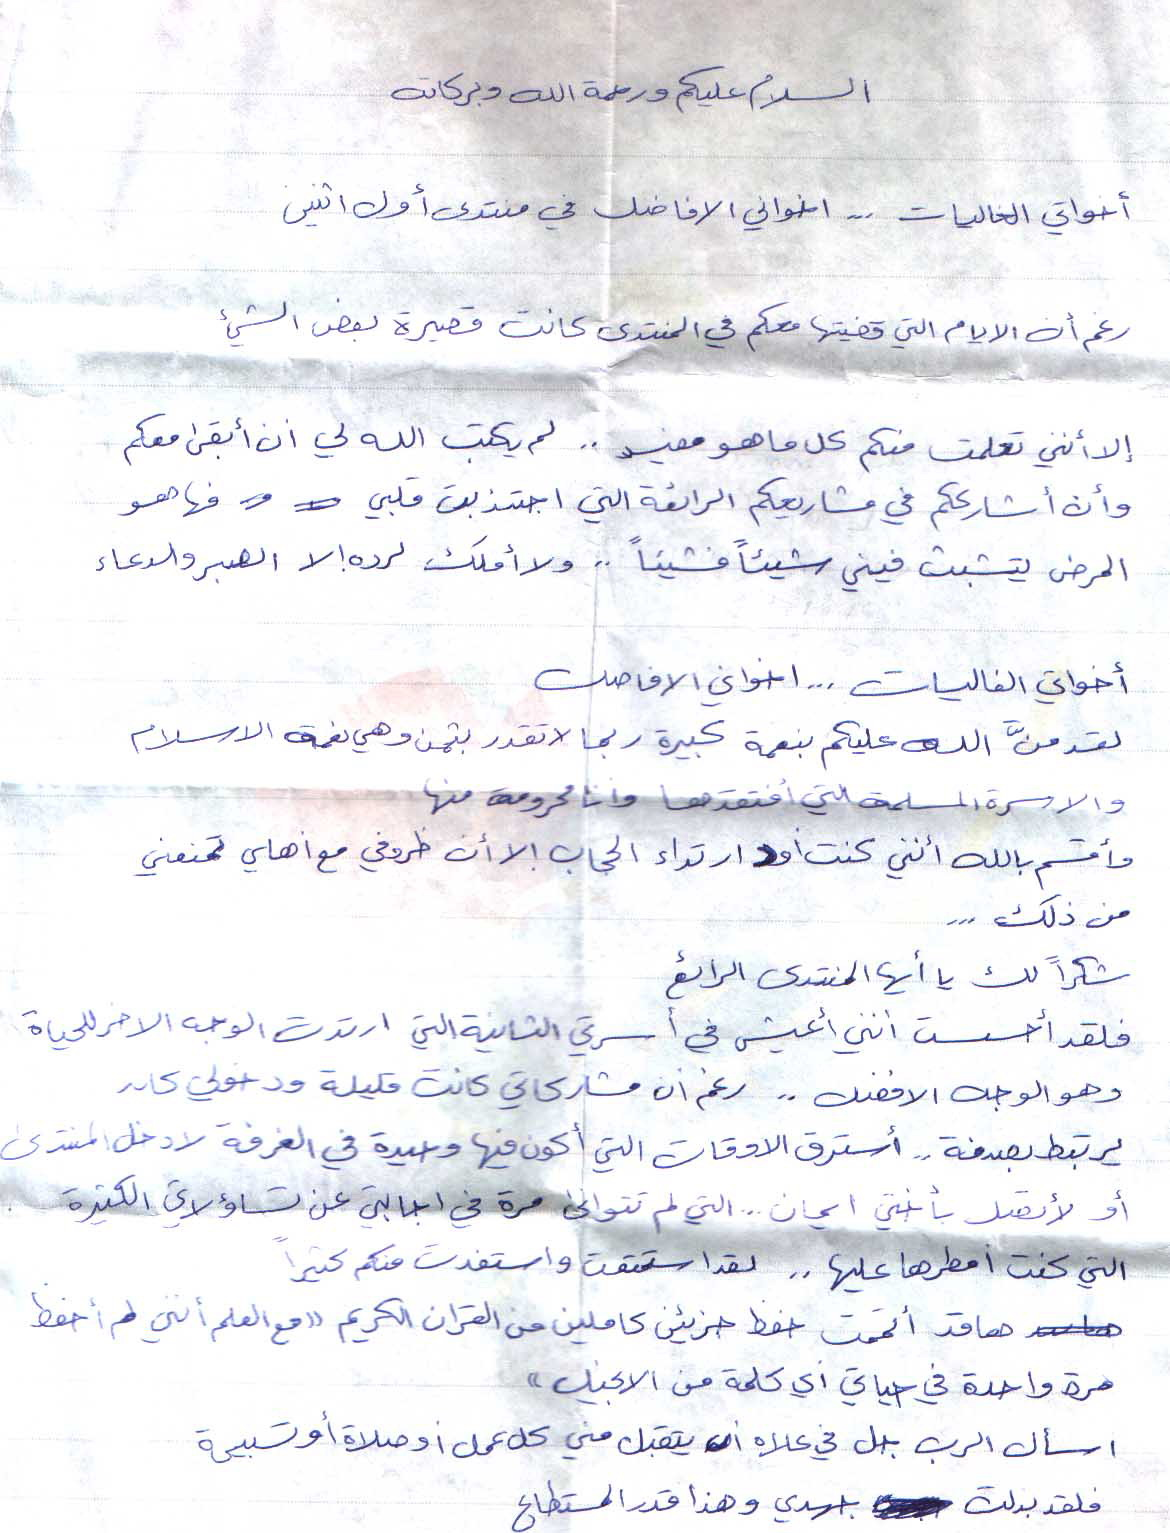 السلام عليكم ورحمة الله وبركاته
أخواتي الغاليات ... اخواني الافاضل في منتدى أول اثنين
رغم أن الايام التي قضيتها معكم في المنتدى كانت قصيرة بعض الشيئ
إلا أنني تعلمت منكم كل ما هو مفيد .. لم يكتب الله لي ان أبقى معكم
وأن أشارككم في مشاريعكم الرائعة التي اجتذبت قلبي فها هو
المرض يتشبث فيني شيئاً فشيئاً .. ولا أملك لرده إلا الصبر والدعاء
أخواتي الغاليات ... اخواني الافاضل
لقد منَّ الله عليكم بنعمة كبيرة ربما لا تقدر بثمن وهي نعمة الاسلام
والاسرة المسلمة التي أفتقدها وانا محرومة منها
وأقسم بالله أنني كنت أود ارتداء الحجاب إلا أن ظروفي مع أهلي تمنعني
من ذلك ...
شكراً لك يا أيها المنتدى الرائع
فلقد أحسست أنني أعيش في أسرتي الثانية التي ارتدت الوجه الاخر للحياة
وهو الوجه الافضل .. رغم ان مشاركاتي كانت قليلة ودخولي كان
يرتبط بصدفة .. أسترق الاوقات التي أكون فيها وحيدة في الغرفة لادخل المنتدى
أو لأتصل بأختي ايمان .. التي لم تتوانى مرة في اجابتي عن تساؤلاتي الكثيرة
التي كنت أمطرها عليها .. لقد استمتعت واستفدت منكم كثيراً
ها قد أتممت حفظ جزئين كاملين من القران الكريم ((مع العلم أنني لم أحفظ
مرة واحدة في حياتي أي كلمة من الانجيل))
اسأل الرب جل في علاه أن يتقبل مني كل عمل أو صلاة أو تسبيحة
فلقد بذلت جهدي وهذا قدر المستطاع